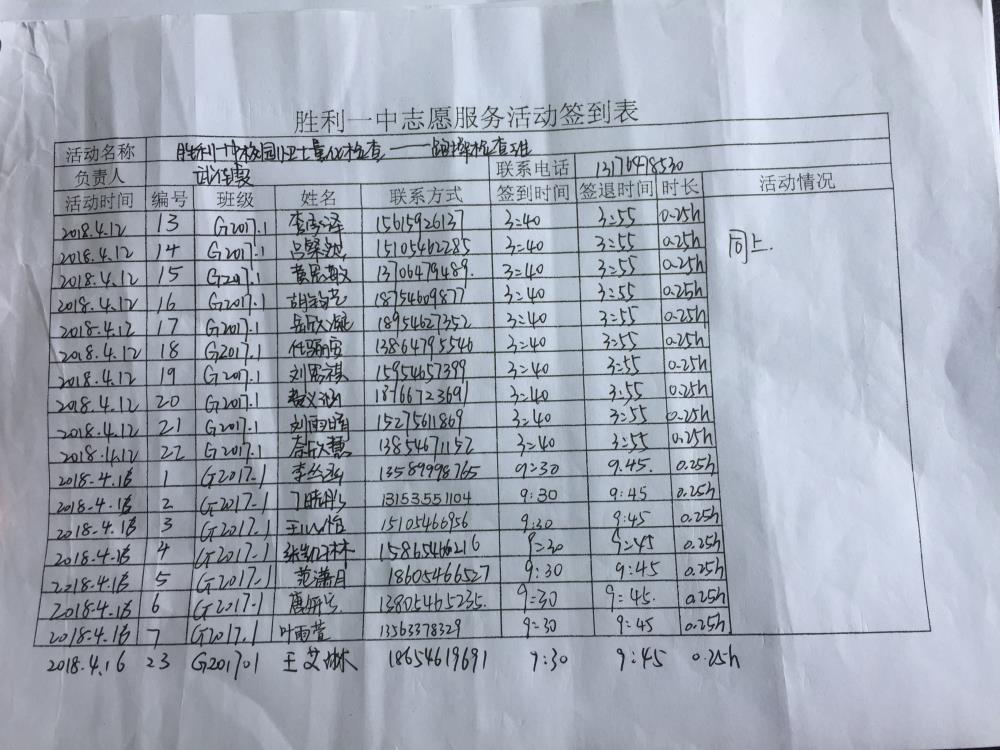 胜利一中志愿服务活动签到表
活动名称 胜利一中校园卫士量化检查——
负责人 联系电话 13176478530
活动时间 编号 班级 姓名 联系方式 签到时间 签退时间 时长 活动情况
2018.4.12 13 G2017.1 15615926137 3:40 3:55 0.25h 同上.
2018.4.12 14 G2017.1 15105462285 3:40 3:55 0.25h
2018.4.12 15 G2017.1 黄思敏 13706479489. 3:40 3:55 0.25h
2018.4.12 16 G2017.1 18754609877 3:40 3:55 0.25h
2018.4.12 17 G2017.1 18954627352 3:40 3:55 0.25h
2018.4.12 18 G2017.1 13864795546 3:40 3:55 0.25h
2018.4.12 19 G2017.1 刘思祺 15954657399 3:40 3:55 0.25h
2018.4.12 20 G2017.1 18766723691 3:40 3:55 0.25h
2018.4.12 21 G2017.1 刘雨晴 15275611869 3:40 3:55 0.25h
2018.4.12 22 G2017.1 13854671152 3:40 3:55 0.25h
2018.4.16 1 G2017.1 13589998765 9:30 9:45. 0.25h
2018.4.16 2 G2017.1 13153551104 9:30 9:45 0.25h
2018.4.16 3 G2017.1 15105466956 9:30 9:45 0.25h
2018.4.16 4 G2017.1 15865466216 9:30 9:45 0.25h
2018.4.16 5 G2017.1 范潇月 18605466527 9:30 9:45 0.25h
2018.4.16 6 G2017.1 13805465235. 9:30 9:45. 0.25h
2018.4.16 7 G2017.1 叶雨萱 13563378329 9:30 9:45 0.25h
2018.4.16 23 G2017.1 王艾琳 18654619691 9:30 9:45 0.25h